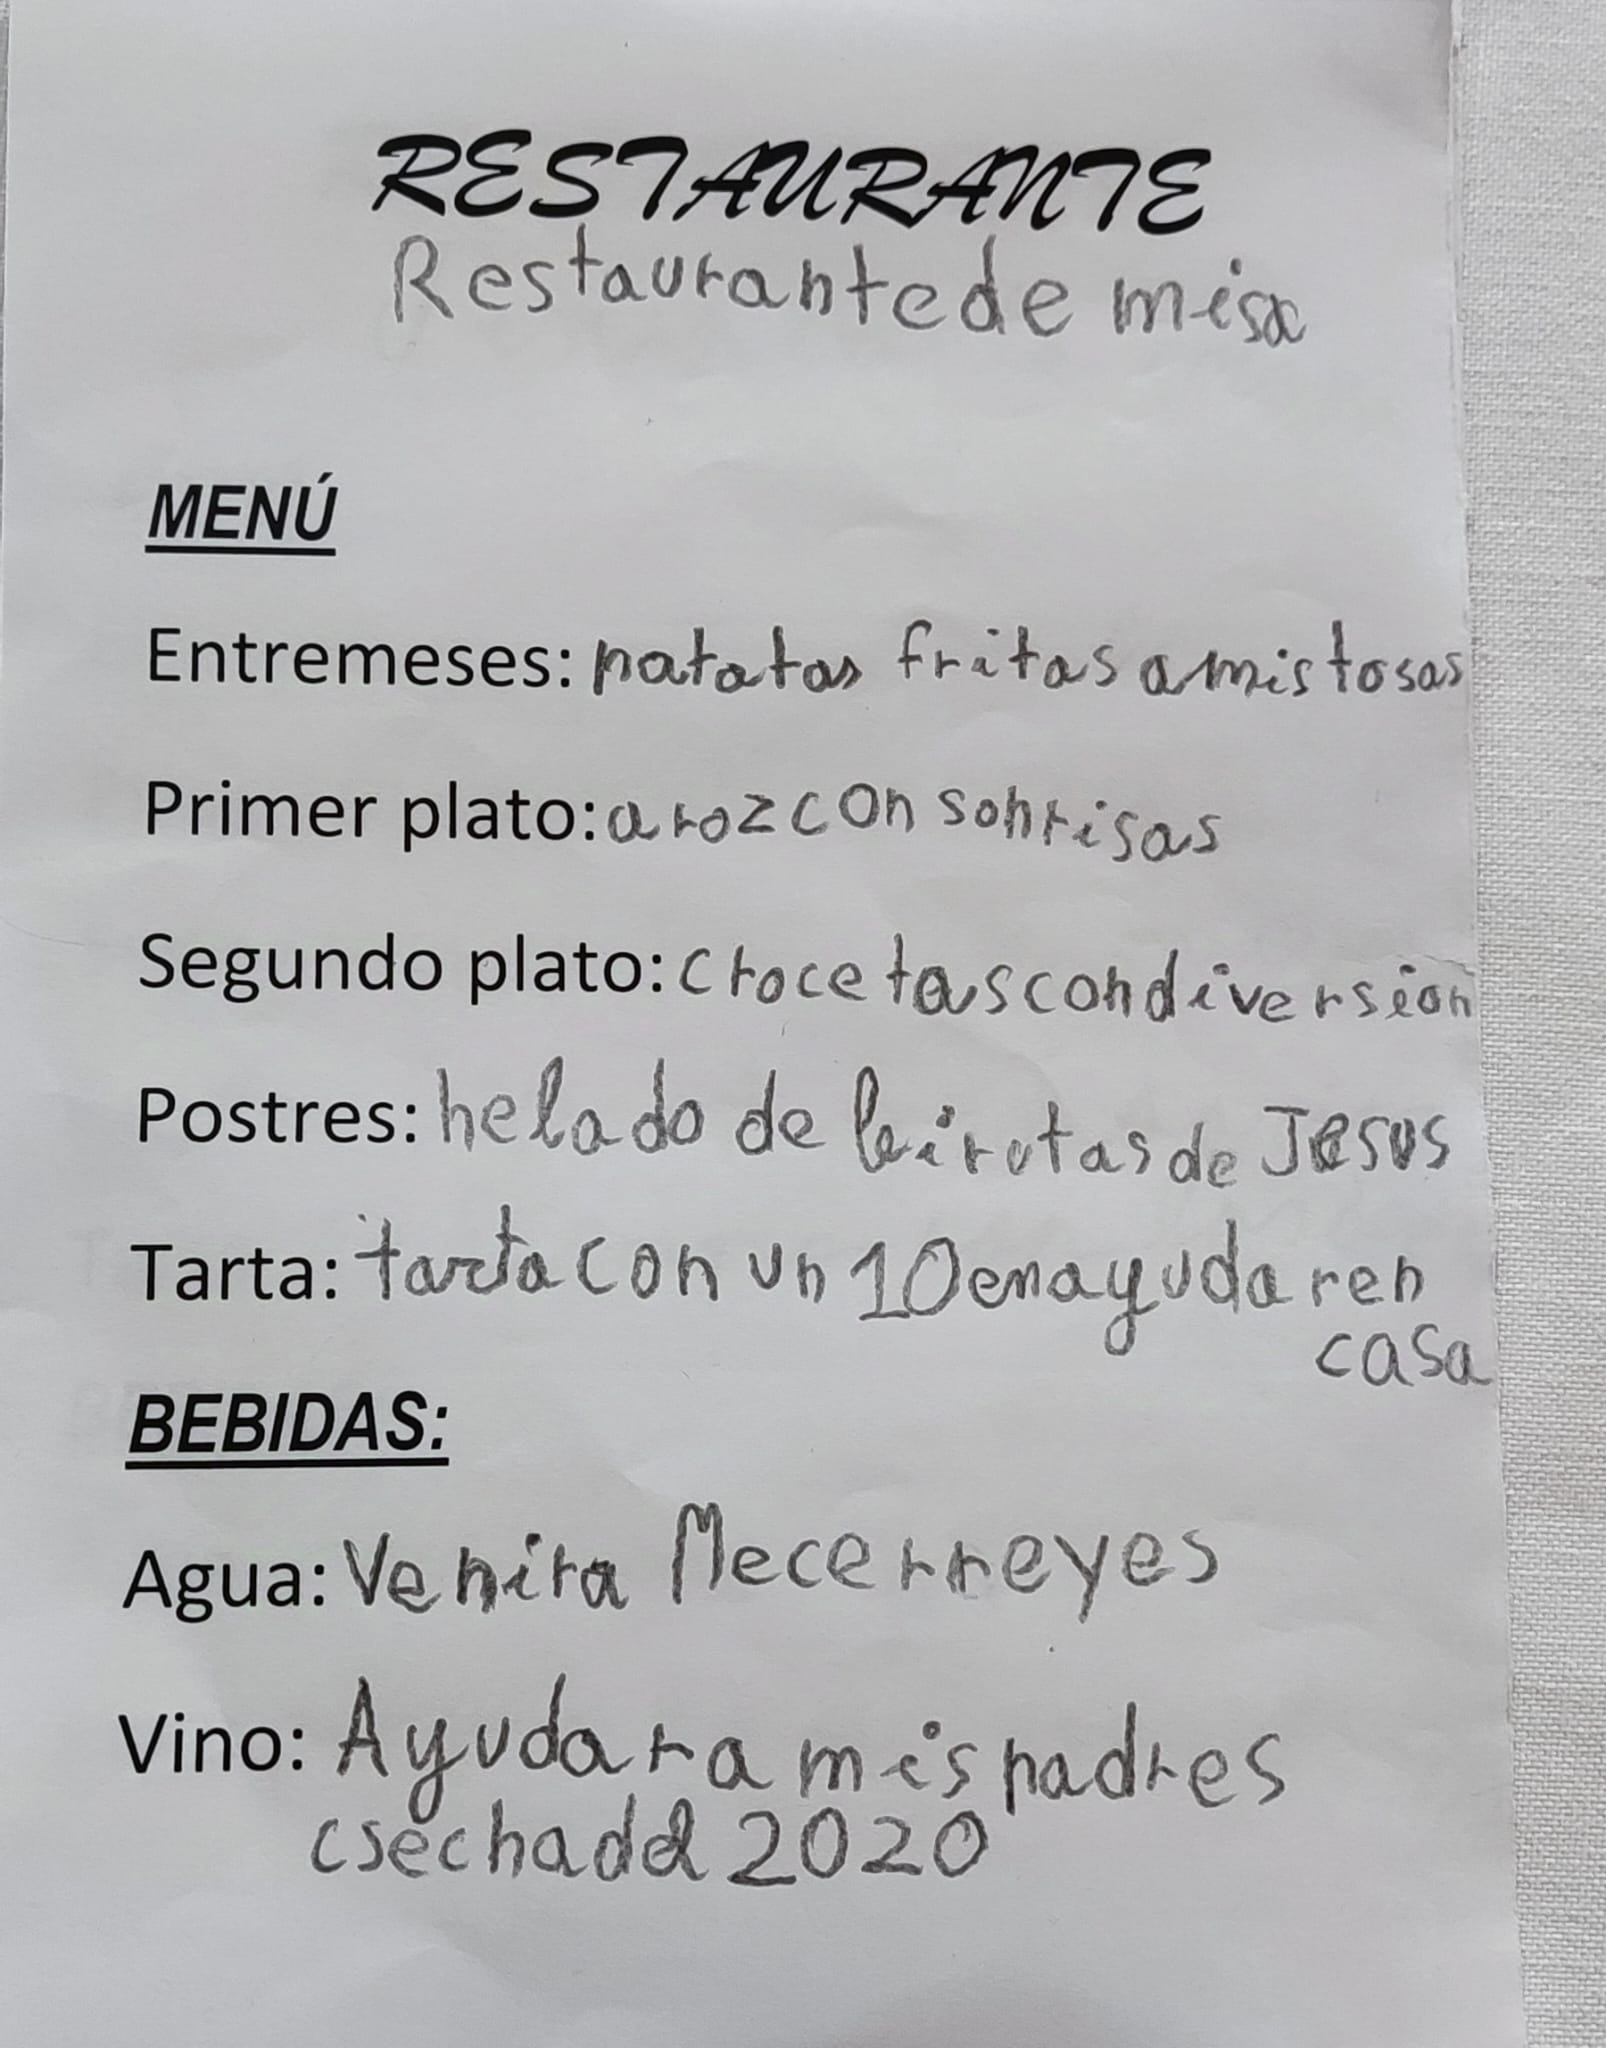 RESTAURANTE
Restaurante de misa
MENÚ
Entremeses: patatas fritas amistosas
Primer plato: aroz con sonrisas
Segundo plato: crocetas con diversion
Postres: helado de de Jesus
Tarta: tarta con un 10 en ayudar en
casa
BEBIDAS:
Agua: Venir a Mecerreyes
Vino: Ayudar a mis padres
csechadel 2020